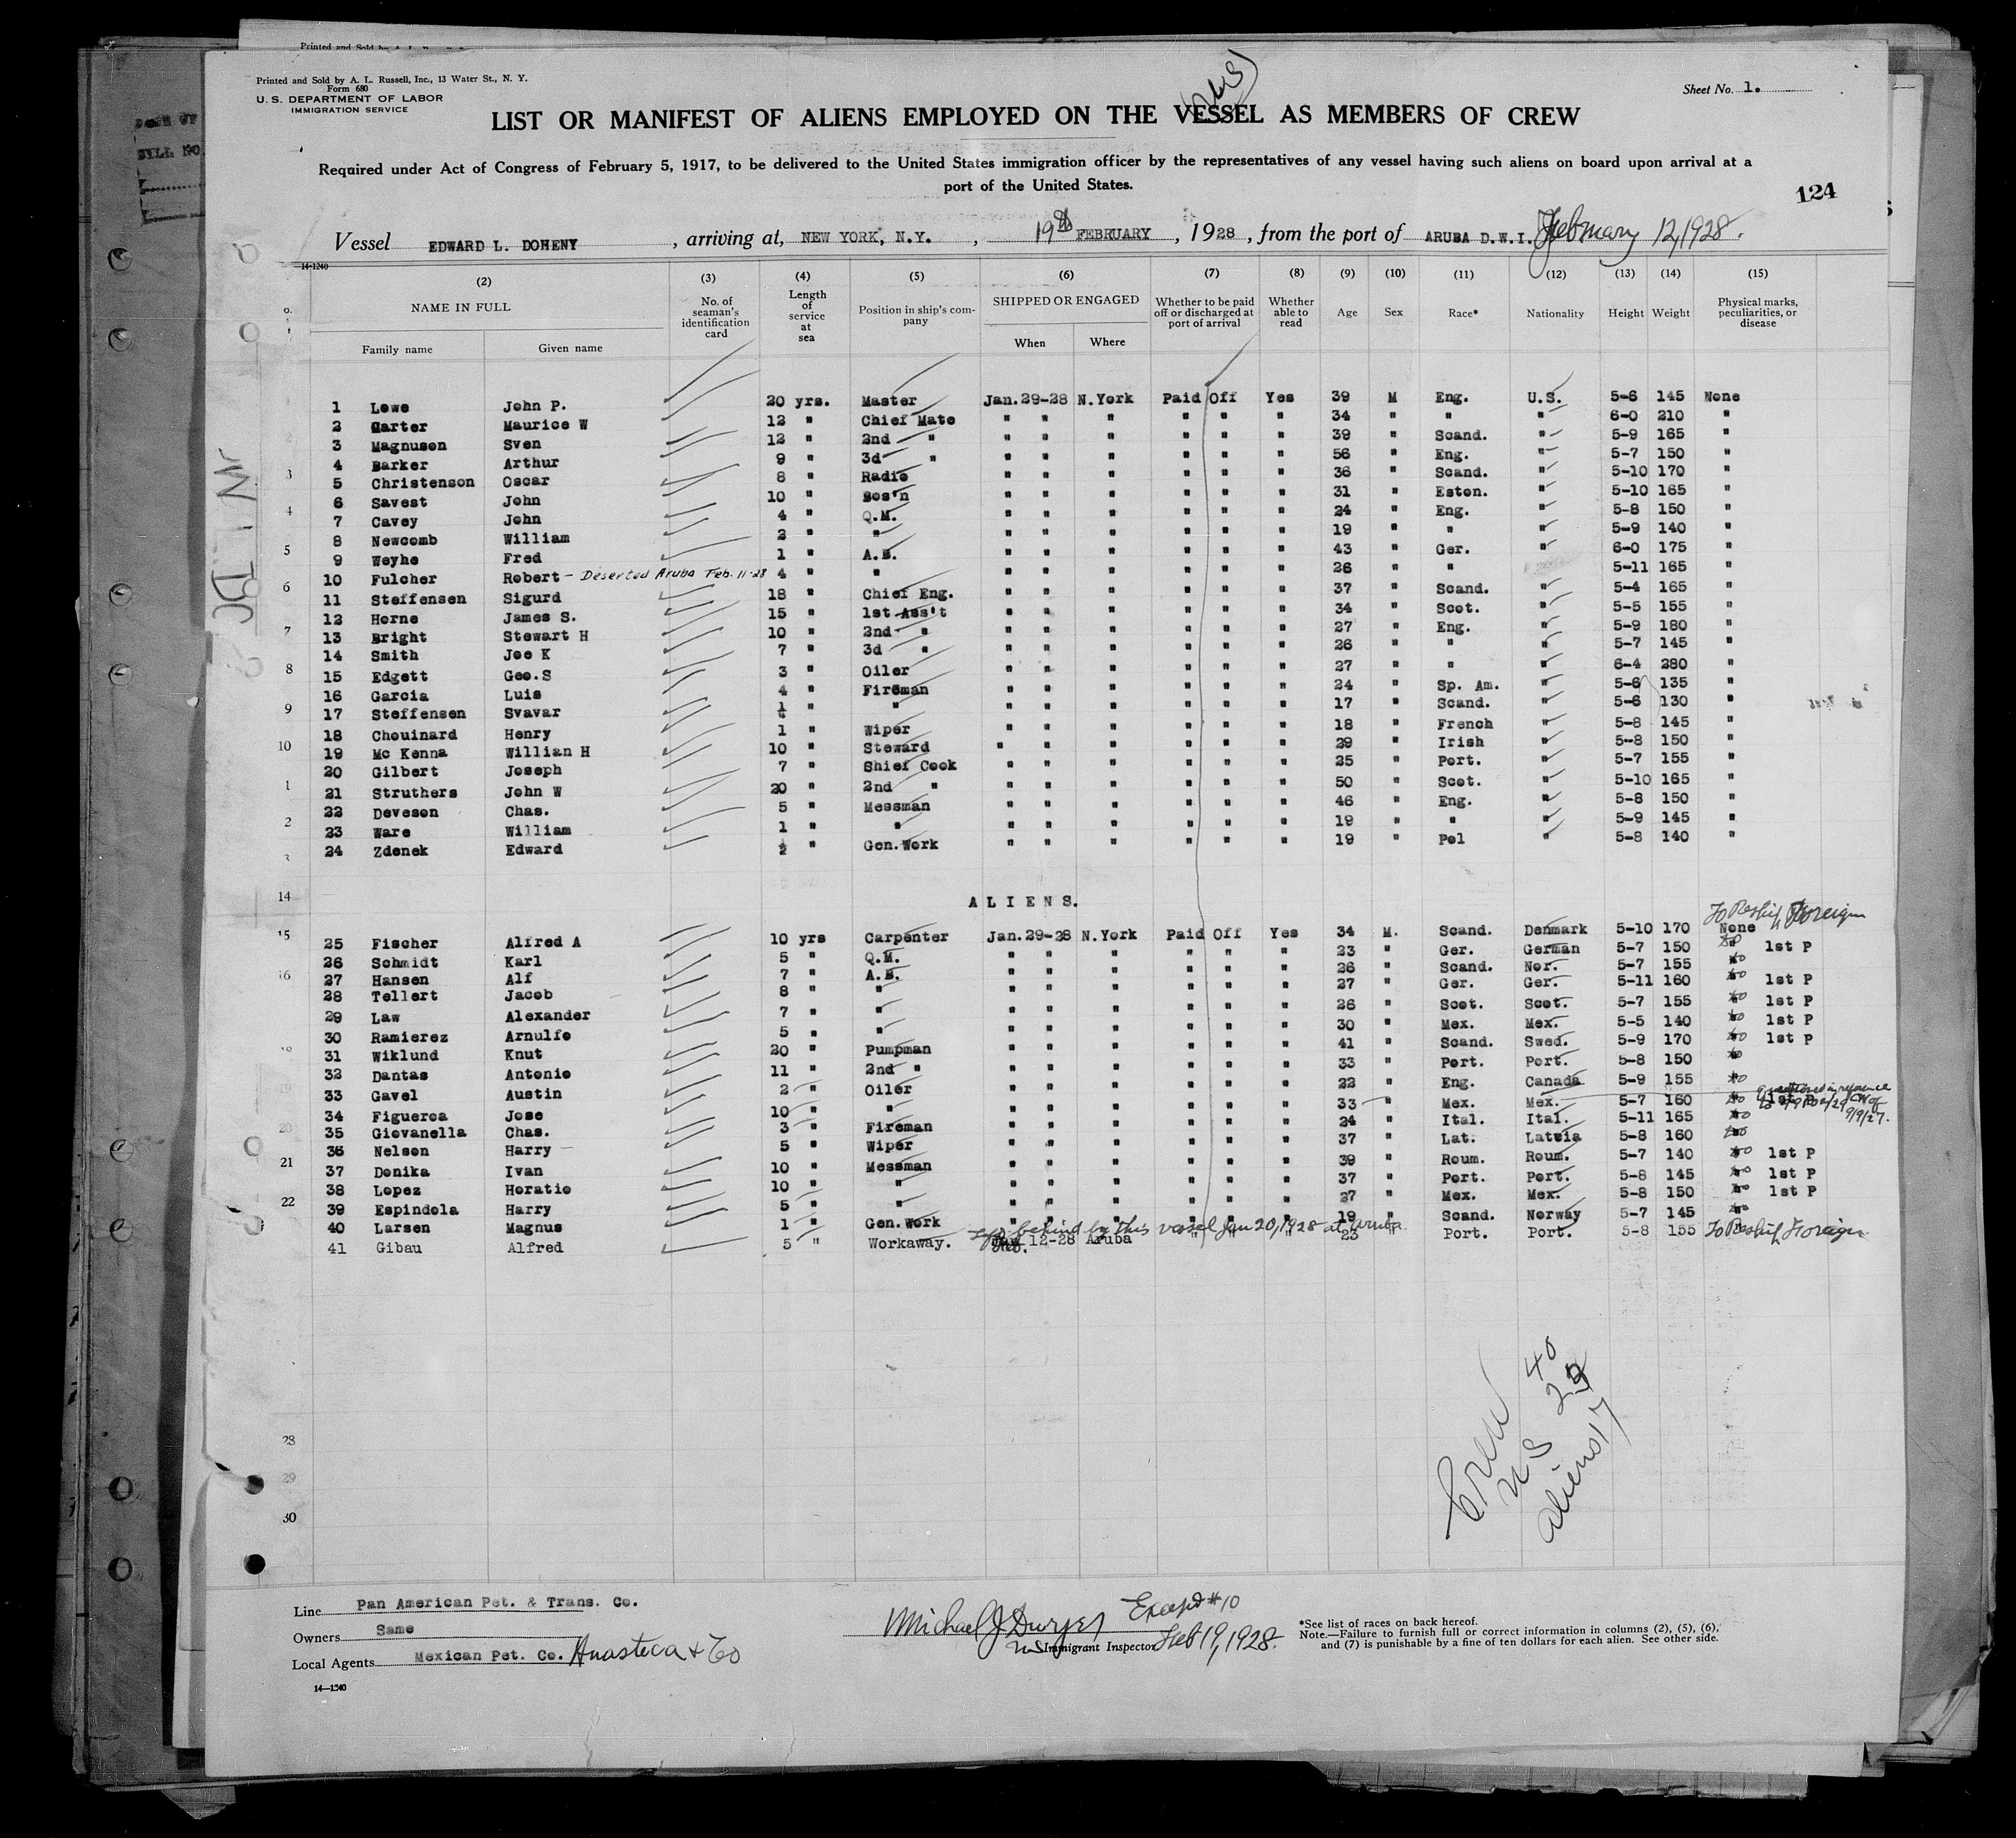 Printed and Sold by A. L. Russell, Inc., 13 Water St., N. Y.
Form 680
U. S. DEPARTMENT OF LABOR
IMMIGRATION SERVICE
Sheet No. 1.
LIST OR MANIFEST OF ALIENS EMPLOYED ON THE VESSEL AS MEMBERS OF CREW
Required under Act of Congress of February 5, 1917, to be delivered to the United States immigration officer by the representatives of any vessel having such aliens on board upon arrival at a
port of the United States.
124
Vessel EDWARD L. DOHENY, arriving at, NEW YORK, N.Y., 19th FEBRUARY, 1928, from the port of ARUBA D.W.I. February 12, 1928.
14-1240
(2) (3) (4) (5) (6) (7) (8) (9) (10) (11) (12) (13) (14) (15)
NAME IN FULL No. of seaman's identification card Length of service at sea Position in ship's company SHIPPED OR ENGAGED Whether to be paid off or discharged at port of arrival Whether able to read Age Sex Race* Nationality Height Weight Physical marks, peculiarities, or disease
Family name Given name When Where
1 Lowe John P. 20 yrs. Master Jan.29-28 N.York Paid Off Yes 39 M Eng. U.S. 5-6 145 None
2 Carter Maurice W 12 " Chief Mate " " " " " " 34 " " " 6-0 210 "
3 Magnusen Sven 12 " 2nd " " " " " " " 39 " Scand. " 5-9 165 "
4 Barker Arthur 9 " 3d " " " " " " " 56 " Eng. " 5-7 150 "
5 Christenson Oscar 8 " Radio " " " " " " 36 " Scand. " 5-10 170 "
6 Savest John 10 " Bos'n " " " " " " 31 " Eston. " 5-10 165 "
7 Cavey John 4 " Q.M. " " " " " " 24 " Eng. " 5-8 150 "
8 Newcomb William 2 " " " " " " " " 19 " " " 5-9 140 "
9 Weyhe Fred 1 " A.B. " " " " " " 43 " Ger. " 6-0 175 "
10 Fulcher Robert - Deserted Aruba Feb. 11-28 4 " " " " " " " " 26 " " 5-11 165 "
11 Steffensen Sigurd 18 " Chief Eng. " " " " " " 37 " Scand. " 5-4 165 "
12 Horne James S. 15 " 1st Ass't " " " " " " 34 " Scot. " 5-5 155 "
13 Bright Stewart H 10 " 2nd " " " " " " " 27 " Eng. " 5-9 180 "
14 Smith Joe K 7 " 3d " " " " " " " 26 " " " 5-7 145 "
15 Edgett Geo.S 3 " Oiler " " " " " " 27 " " " 6-4 280 "
16 Garcia Luis 4 " Fireman " " " " " " 24 " Sp. Am. " 5-6 135 "
17 Steffensen Svavar " " " " " " " " 17 " Scand. " 5-6 130 "
18 Chouinard Henry 1 " Wiper " " " " " " 18 " French " 5-8 145 "
19 Mc Kenna Willian H 10 " Steward " " " " " " 29 " Irish " 5-8 150 "
20 Gilbert Joseph 7 " Shief Cook " " " " " " 25 " Port. " 5-7 155 "
21 Struthers John W 20 " 2nd " " " " " " " 50 " Scot. " 5-10 165 "
22 Deveson Chas. 5 " Messman " " " " " " 46 " Eng. " 5-8 150 "
23 Ware William 1 " " " " " " " " 19 " " " 5-9 145 "
24 Zdenek Edward ½ " Gen.Work " " " " " " 19 " Pol " 5-8 140 "
ALIENS.
To Reship Foreign
25 Fischer Alfred A 10 yrs Carpenter Jan.29-28 N.York Paid Off Yes 34 M. Scand. Denmark 5-10 170 None
26 Schmidt Karl 5 " Q.M. " " " " " " 23 " Ger. German 5-7 150 do 1st P
27 Hansen Alf 7 " A.B. " " " " " " 26 " Scand. Nor. 5-7 155 do
28 Tellert Jacob 8 " " " " " " " " 27 " Ger. Ger. 5-11 160 do 1st P
29 Law Alexander 7 " " " " " " " " 26 " Scot. Scot. 5-7 155 do 1st P
30 Ramierez Arnulfo 5 " " " " " " " " 30 " Mex. Mex. 5-5 140 do 1st P
31 Wiklund Knut 20 " Pumpman " " " " " " 41 " Scand. Swed. 5-9 170 do 1st P
32 Dantas Antonio 11 " 2nd " " " " " " " 33 " Port. Port. 5-8 150 do
33 Gavel Austin 2 " Oiler " " " " " " 22 " Eng. Canada 5-9 155 do
34 Figueroa Jose 10 " " " " " " " " 33 " Mex. Mex. 5-7 160 do 1st P
35 Giovanella Chas. 3 " Fireman " " " " " " 24 " Ital. Ital. 5-11 165 do 9/9/27.
36 Nelson Harry 5 " Wiper " " " " " " 37 " Lat. Latvia 5-8 160 do
37 Donika Ivan 10 " Messman " " " " " " 39 " Roum. Roum. 5-7 140 do 1st P
38 Lopez Horatio 10 " " " " " " " " 37 " Port. Port. 5-8 145 do 1st P
39 Espindola Harry 5 " " " " " " " " 27 " Mex. Mex. 5-8 150 do 1st P
40 Larsen Magnus 1 " Gen.Work " " " " " " 19 " Scand. Norway 5-7 145 do
left behind by this vessel Jan 20, 1928 at Aruba.
41 Gibau Alfred 5 " Workaway. Feb. 12-28 Aruba " " " 23 " Port. Port. 5-8 155 To Reship Foreign
Crew 40
US 23
aliens 17
Line Pan American Pet. & Trans. Co.
Owners Same
Local Agents Mexican Pet. Co. Huasteca & Co
14-1240
Michael J Dwyer Except #10
Immigrant Inspector Feb 19, 1928.
*See list of races on back hereof.
Note.—Failure to furnish full or correct information in columns (2), (5), (6),
and (7) is punishable by a fine of ten dollars for each alien. See other side.